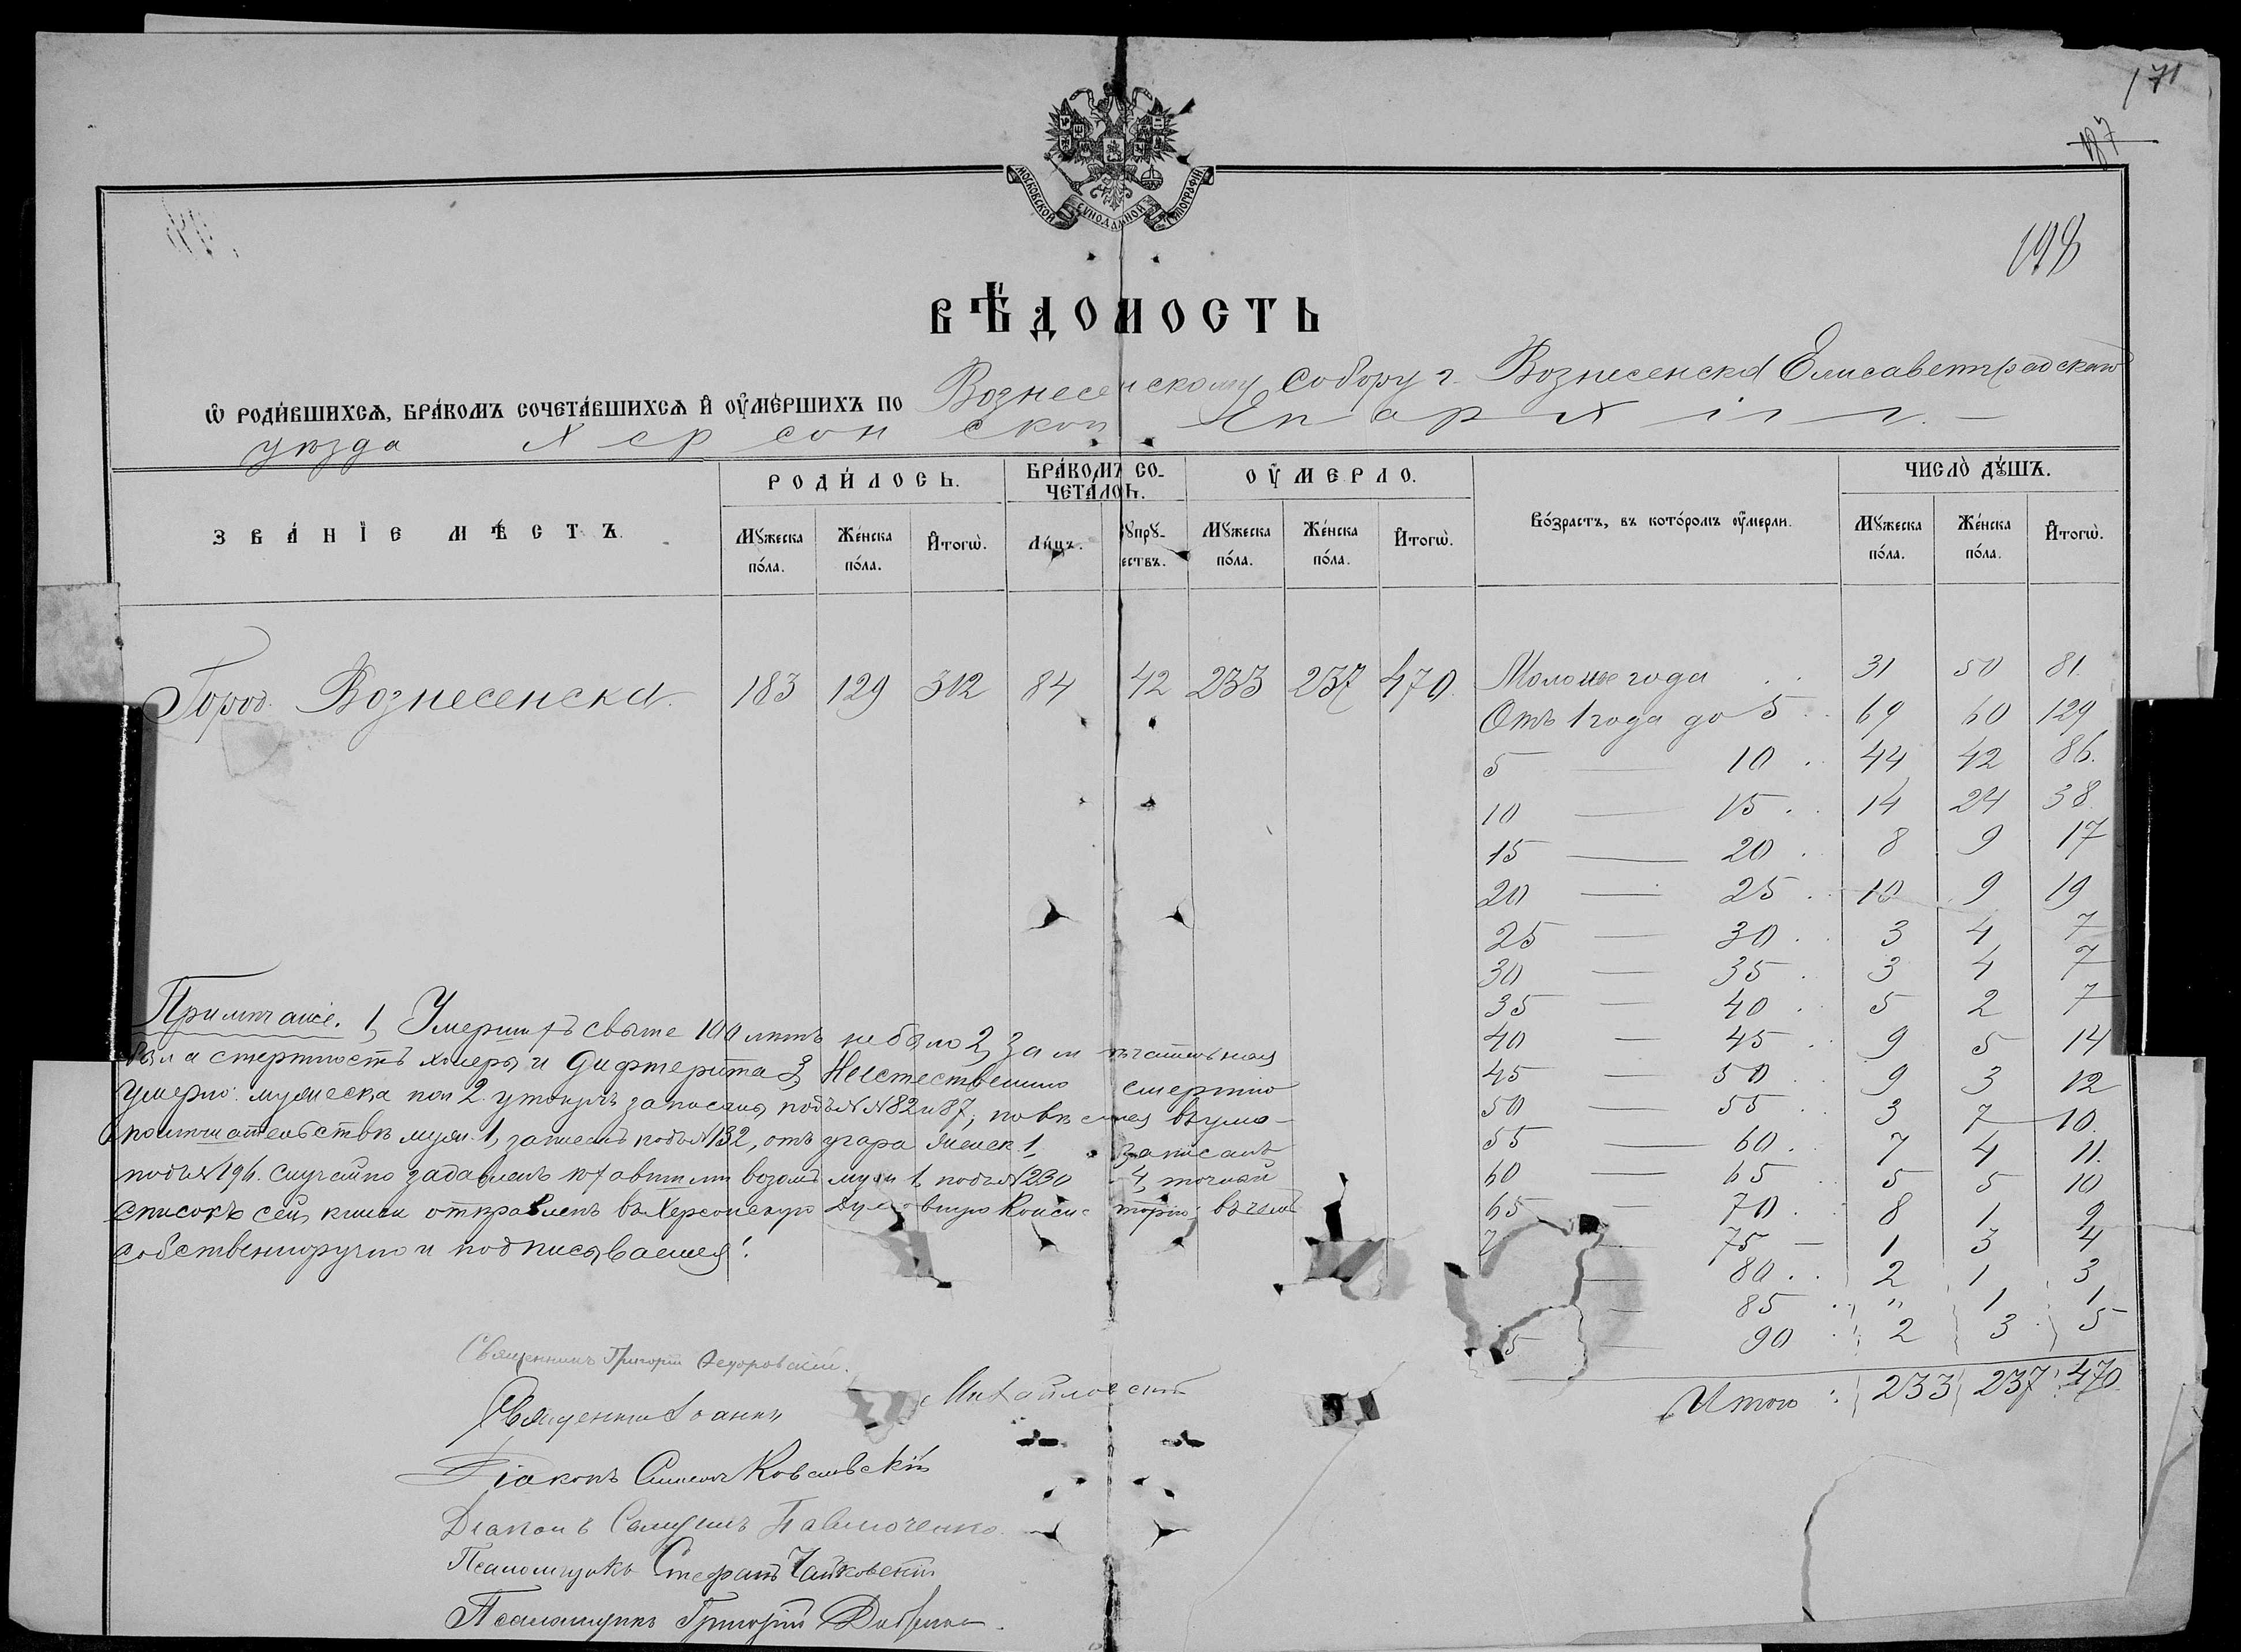 171
198
МОСКОВСКОЙ СѴНОДАЛЬНОЙ ТИПОГРАФІИ
ВѢДОМОСТЬ
Ѡ РОДИ́ВШИХСѦ, БРА́КОМЪ СОЧЕТА́ВШИХСѦ И҆ ОУ҆МЕ́РШИХЪ ПО Вознесенскому Собору г. Вознесенска Елисаветградскаго
уѣзда Херсонской Епархіи.
ЗВА́НІЕ МѢ́СТЪ.
РОДИ́ЛОСЬ.
БРА́КОМЪ СОЧЕТА́ЛОСЬ.
ОУ҆МЕРЛО.
Во́зрастъ, въ кото́ромъ оу҆мерли.
ЧИСЛО̀ ДꙊ́ШЪ.
Мꙋ́жеска по́ла. Же́нска по́ла. И҆тогѡ̀. Ли́цъ. Сꙋпрꙋ́жествъ. Мꙋ́жеска по́ла. Же́нска по́ла. И҆тогѡ̀. Мꙋ́жеска по́ла. Же́нска по́ла. И҆тогѡ̀.
Город. Вознесенска 183 129 312 84 42 233 237 470.
Моложе года . . 31 50 81.
Отъ 1 года до 5 . . 69 60 129
5 — 10 . 44 42 86.
10 — 15 . . 14 24 38.
15 — 20 . 8 9 17
20 — 25 . . 10 9 19
25 — 30 . . 3 4 7
30 — 35 . 3 4 7
35 — 40 . . 5 2 7
40 — 45 . . 9 5 14
45 — 50 . . 9 3 12
50 — 55 . . 3 7 10.
55 — 60 . . 7 4 11.
60 — 65 . . 5 5 10
65 — 70 . . 8 1 9
7 — 75 — 1 3 4
— 80 . . 2 1 3
— 85 . . " 1 1
5 — 90 . . 2 3 5
Итого : 233 237 470.
Примѣчаніе. 1, Умершихъ свыше 100 лѣтъ не было 2, Замѣчательная
была смертность холеры и дифтерита 3, Неестественно смертію
умерло: мужеска пол 2. утонулъ записаны подъ №№ 82 и 87; повѣсился въ умо-
помѣшательствѣ муж. 1, записанъ подъ № 132, отъ угара женск. 1, записанъ
подъ № 196. случайно задавленъ возомъ муж 1, подъ № 230 4, точный
списокъ сей книги отправленъ въ Херсонскую Духовную Консисторію; въ чемъ
собственноручно и подписываемся:
Священникъ Григорій Федоровскій.
Священник Іоаннъ Михайловскій
Діаконъ Ковалевскій
Діаконъ Самуилъ Павлюченко
Псаломщикъ Стефанъ Чайковскій
Псаломщикъ Григорій